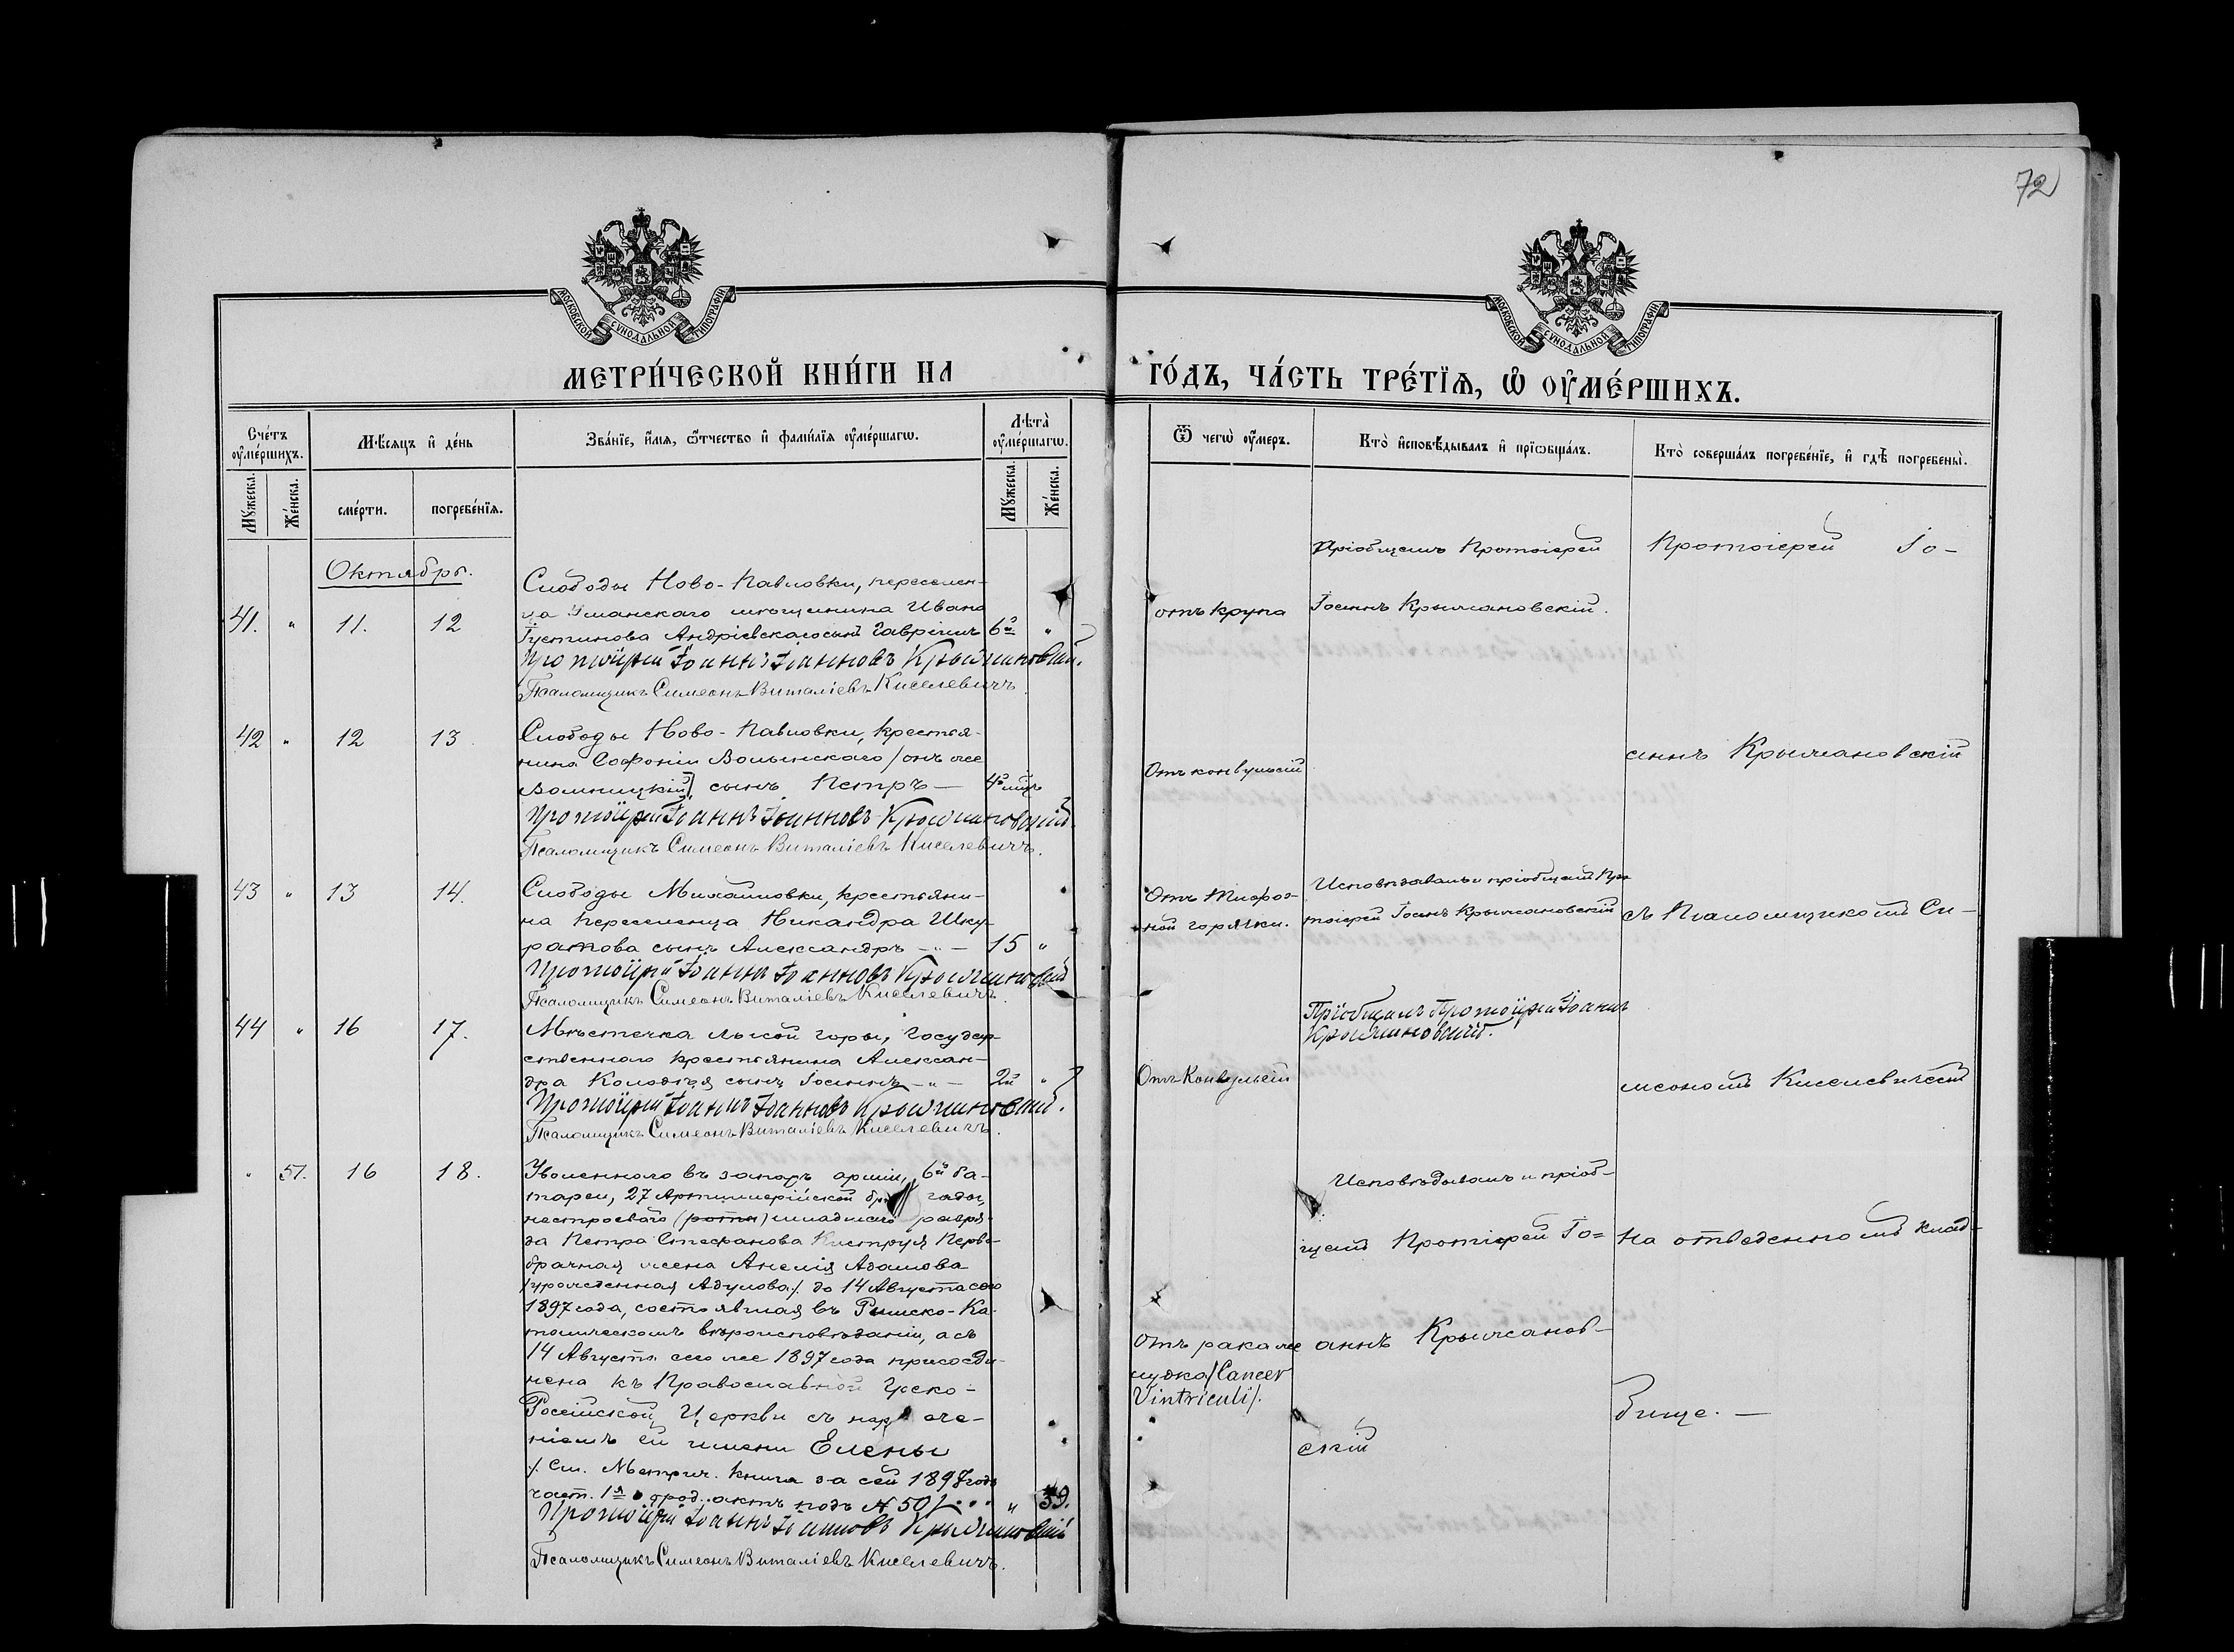 72
МОСКОВСКОЙ СУНОДАЛЬНОЙ ТИПОГРАФІИ
МОСКОВСКОЙ СУНОДАЛЬНОЙ ТИПОГРАФІИ
МЕТРИ́ЧЕСКОЙ КНИ́ГИ НА
ГО́ДЪ, ЧА́СТЬ ТРЕ́ТЇѦ, Ѡ҆ ОУ҆МЕ́РШИХЪ.
Сче́тъ оу҆ме́ршихъ.
Мꙋ́жеска.
Же́нска.
Мѣ́сяцъ и҆ де́нь
сме́рти.
погребе́нїѧ.
Зва́нїе, и҆́мѧ, ѻ҆́тчество и҆ фами́лїѧ оу҆ме́ршагѡ.
Лѣ́та оу҆ме́ршагѡ.
Мꙋ́жеска.
Же́нска.
Ѿ чегѡ̀ оу҆́меръ.
Кто̀ и҆сповѣ́дывалъ и҆ прїѡбща́лъ.
Кто̀ соверша́лъ погребе́нїе, и҆ гдѣ̀ погребены̀.
Октябрь.
41. " 11. 12
Слободы Ново-Павловки, переселен-
ца Уманскаго мѣщанина Ивана
Іустинова Андріевскаго сынъ Гавріилъ 6 "
Протоіерей Іоаннъ Іоанновъ Крыжановскій.
Псаломщикъ Симеонъ Виталіевъ Киселевичъ.
отъ крупа
Пріобщалъ Протоіерей
Іоаннъ Крыжановскій.
Протоіерей Іо-
42 " 12 13
Слободы Ново-Павловки, крестья-
нина Софонія Волынскаго /онъ же
сынъ Петръ — 4
Протоіерей Іоаннъ Іоанновъ Крыжановскій.
Псаломщикъ Симеонъ Виталіевъ Киселевичъ.
Отъ конвульсій
аннъ Крыжановскій
43 " 13 14.
Слободы Михайловки, крестьяни-
на переселенца Никандра Шку-
ратова сынъ Александръ - " - 15 "
Протоіерей Іоаннъ Іоанновъ Крыжановскій
Псаломщикъ Симеонъ Виталіевъ Киселевичъ.
Отъ Тифоз-
ной горячки.
Исповѣдывалъ и пріобщалъ Про-
тоіерей Іоаннъ Крыжановскій
съ Псаломщикомъ Си-
44 " 16 17.
Мѣстечка Лысой горы, Государ-
ственнаго крестьянина Алексан-
дра Колодѣя сынъ Іоаннъ - " - 2 "
Протоіерей Іоаннъ Іоанновъ Крыжановскій.
Псаломщикъ Симеонъ Виталіевъ Киселевичъ.
Отъ Конвульсій
Пріобщалъ Протоіерей Іоаннъ
Крыжановскій.
меономъ Киселевичемъ
" 51. 16 18.
Уволеннаго въ запасъ арміи, 6й ба-
тареи, 27 Артиллерійской бригады,
нестроеваго (роты) младшаго разря-
да Петра Стефанова КистрUя перво-
брачная жена Анелія Адамова
/урожденная Адулова/. до 14 Августа сего
1897 года, состоявшая въ Римско-Ка-
толическомъ вѣроисповѣданіи, а съ
14 Августа сего же 1897 года присоеди-
нена къ Православной Греко-
Россійской Церкви съ наречe-
ніемъ ей имени Елены
/. См. Метрич. книга за сей 1897 годъ
част. 1я о род. актъ подъ № 50/. . . " 39.
Протоіерей Іоаннъ Іоанновъ Крыжановскій
Псаломщикъ Симеонъ Виталіевъ Киселевичъ.
Отъ рака же
лудка /Cancer
Vintriculi/.
Исповѣдывалъ и пріоб-
щалъ Протоіерей Іо=
аннъ Крыжанов-
скій
На отведенномъ клад-
бище. —